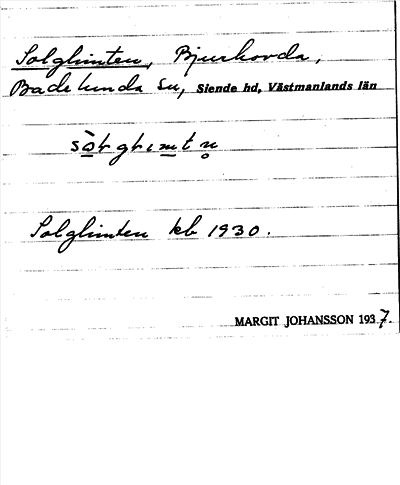 Solglimten, Bjurhovda,
Badelunda sn, Siende hd, Västmanlands län
Solglimten kb 1930.
MARGIT JOHANSSON 1937.